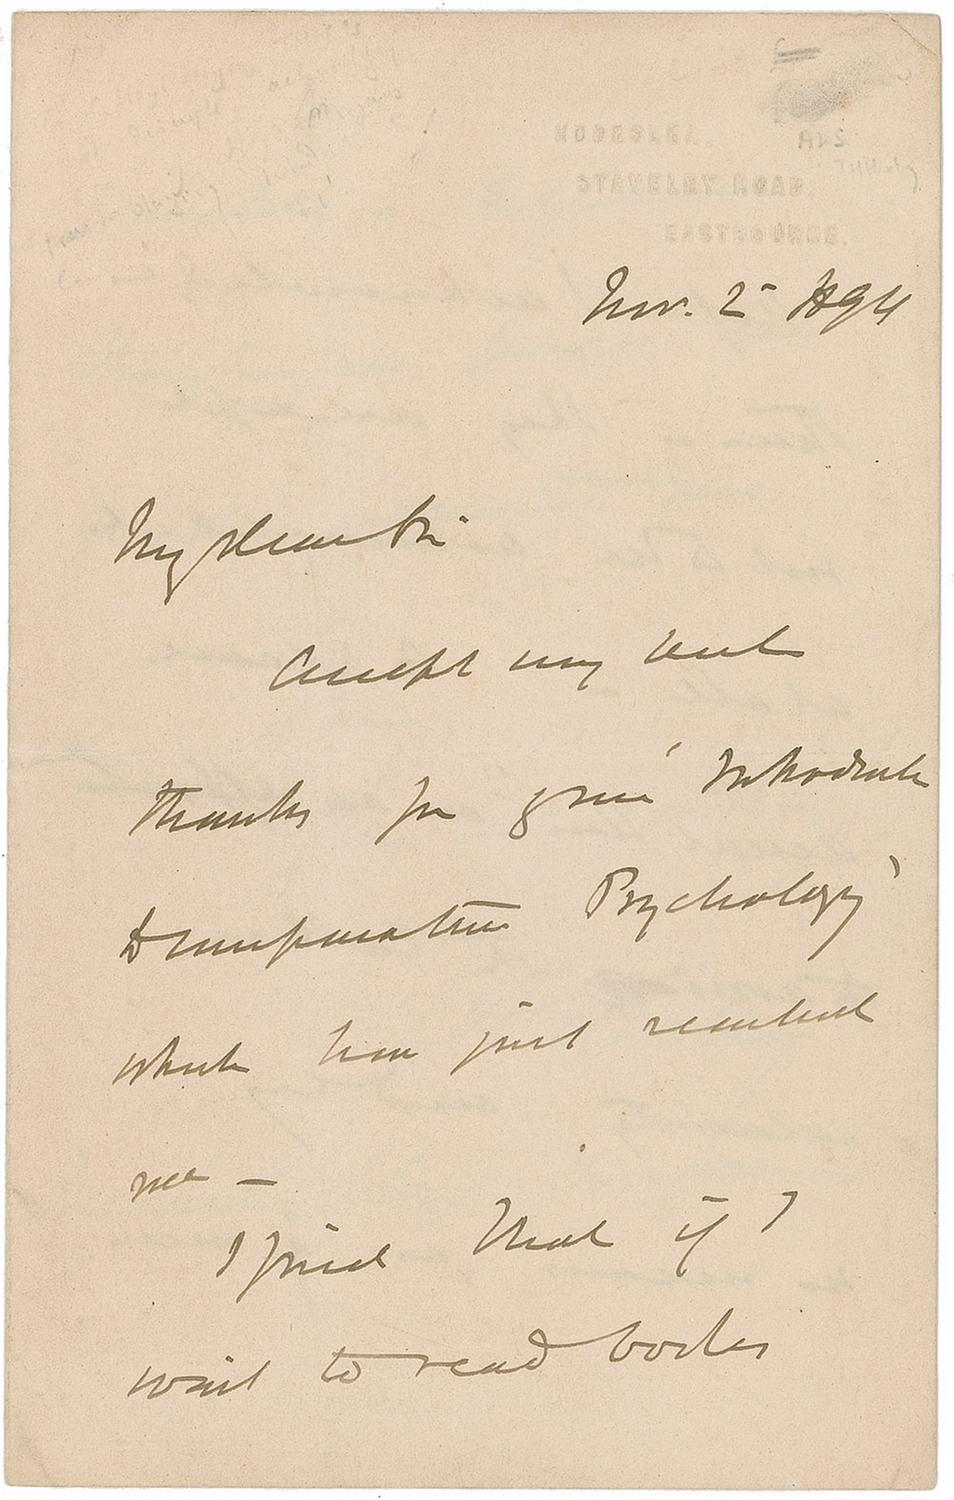 HODESLEA.
STAVELEY ROAD.
EASTBOURNE.
ALS
Nov. 25 1894
My dear Sir
Accept my best
thanks for your 'Introduction
to Comparative Psychology'
which has just reached
me —
I find that if I
wait to read books